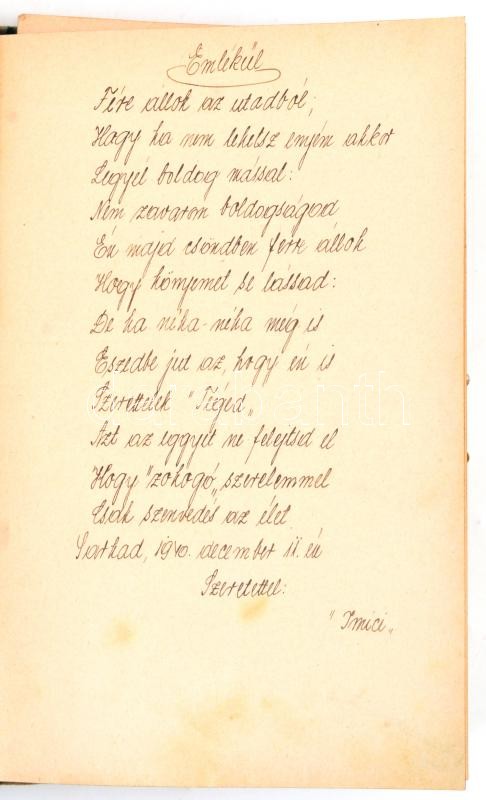 Emlékül
Fére állok az utadból;
Hogy ha nem lehelsz enyém akkor
Legyél boldog mással:
Nem zavarom boldogságod
Én majd csöndben ferre állok
Hogy könyemet se lássad:
De ha néha-néha még is
Eszedbe jut az, hogy én is
Szerettelek "Téged„
Azt az eggyit ne felejtsd el
Hogy "zokogó„ szerelemmel
Csak szenvedés az élet
Sarkad, 1940. december 11. én
Szeretettel:
"Imici„